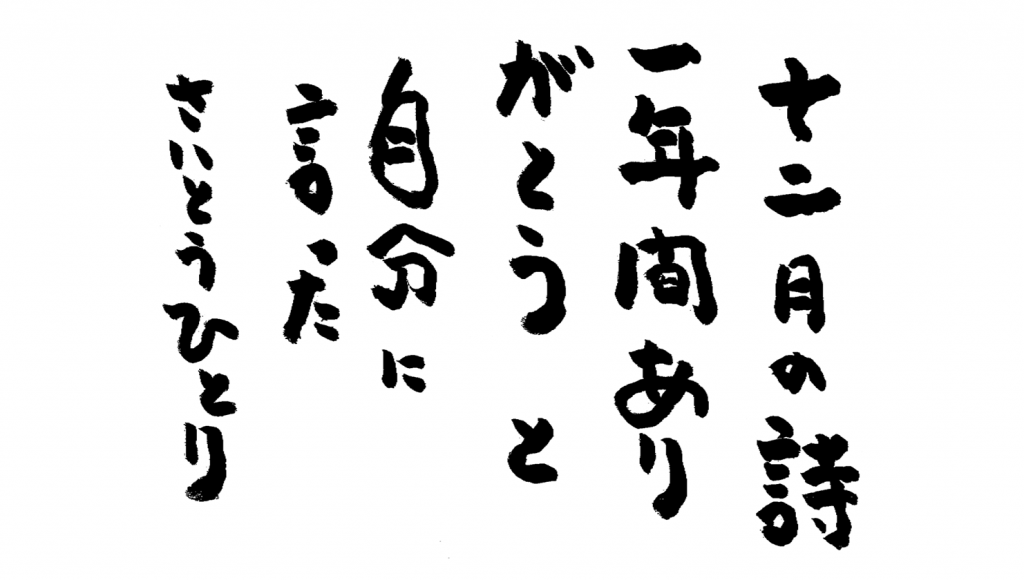 十二月の詩
一年間あり
がとうと
自分に
言った
さいとうひとり